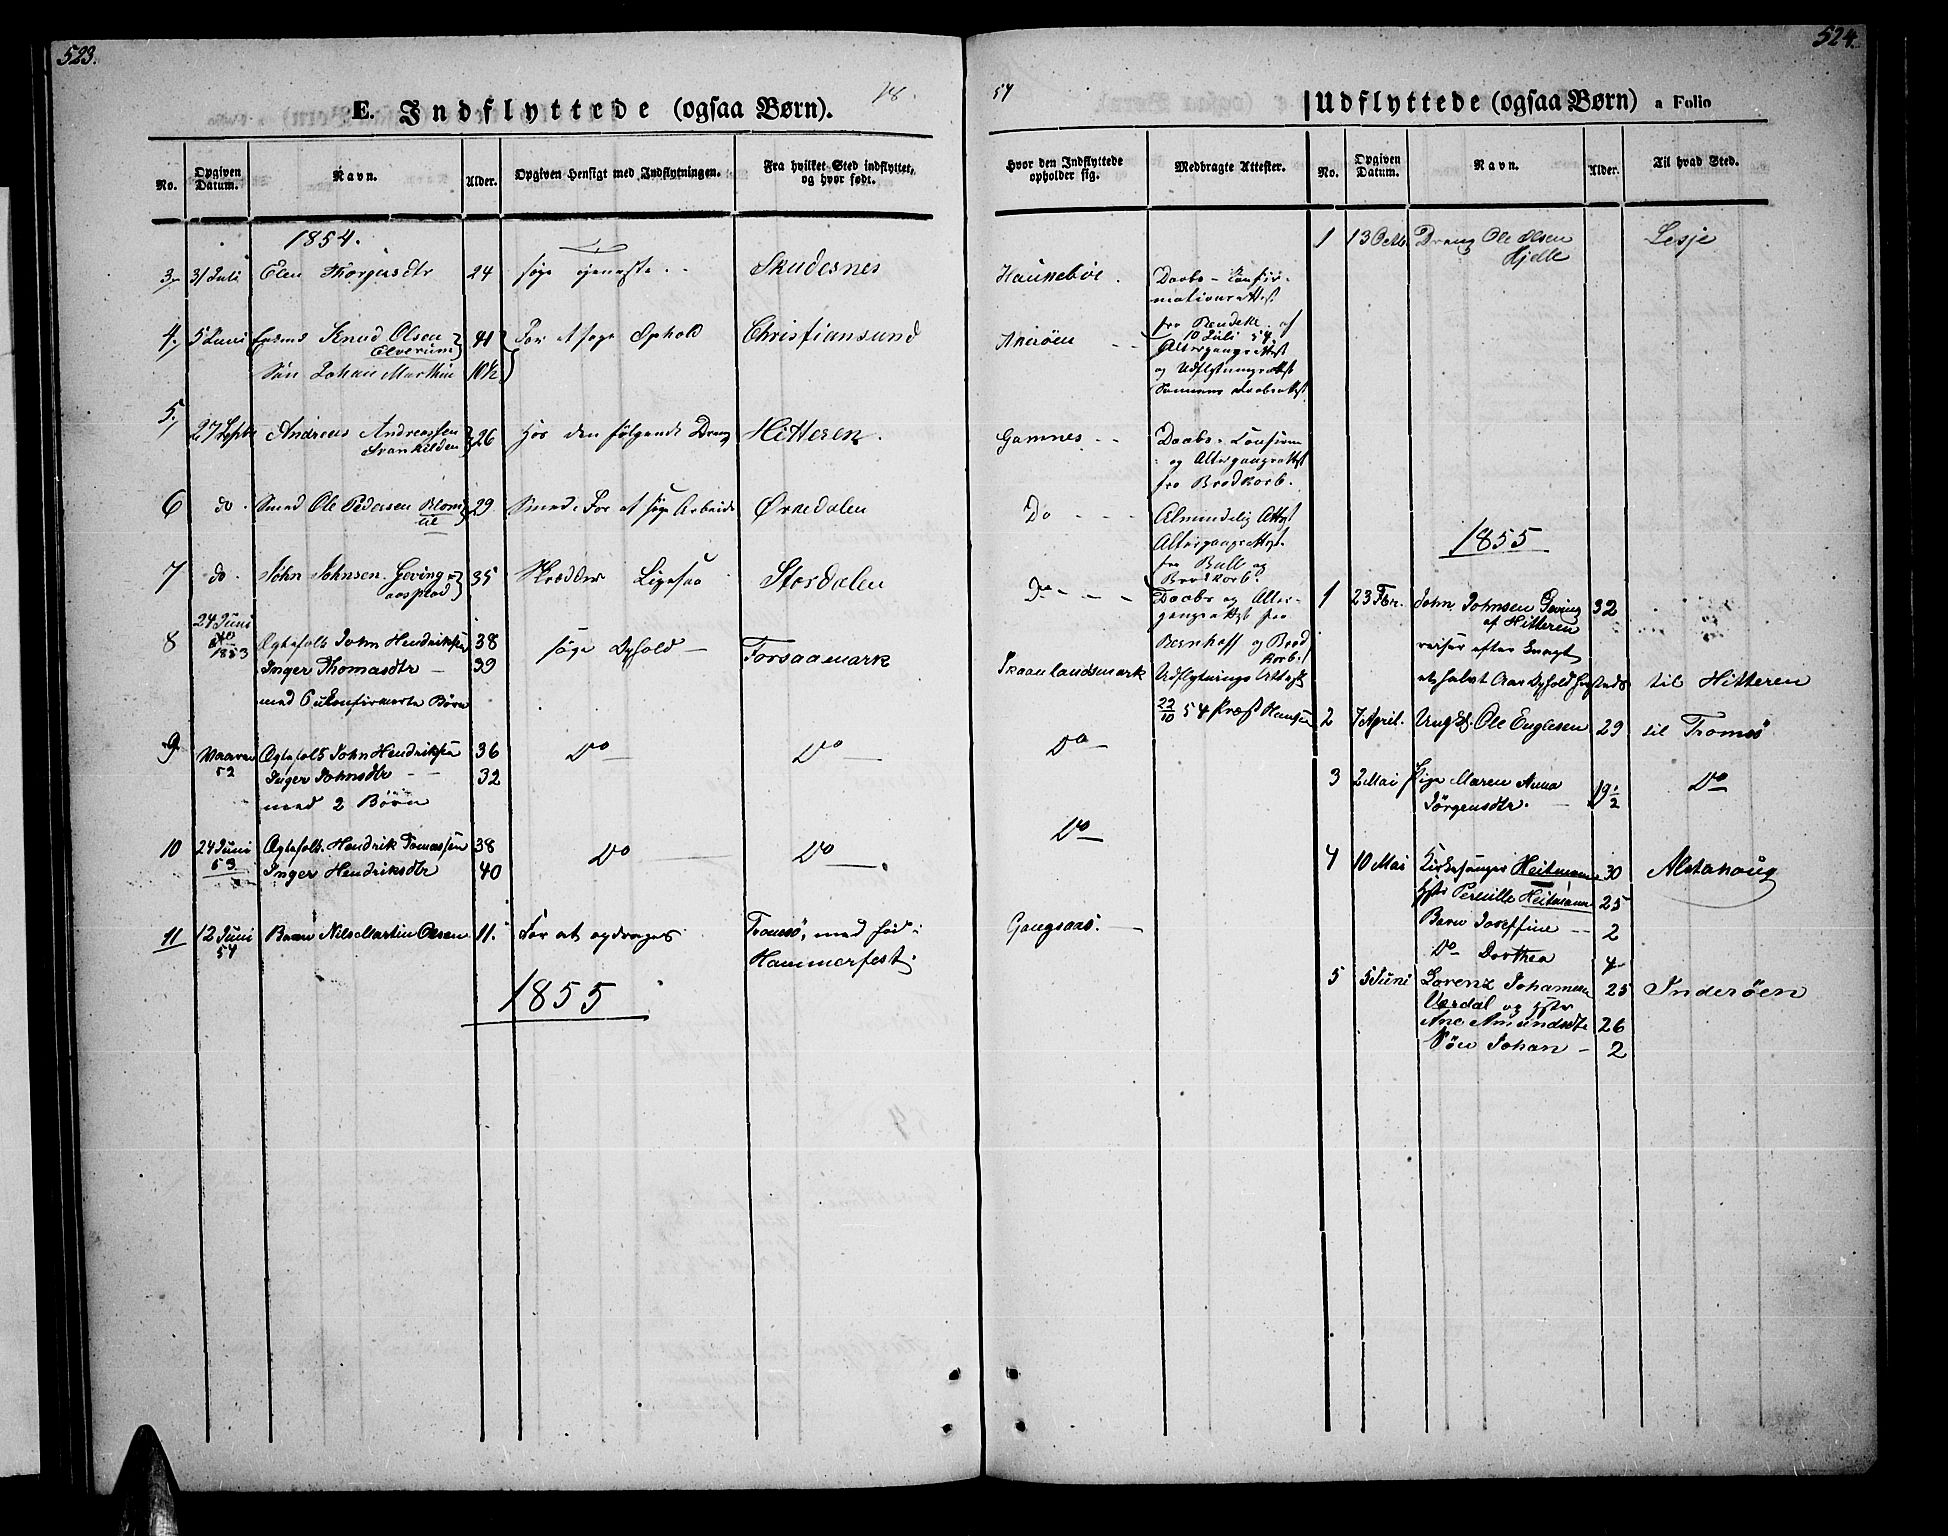 523.
18.
E. Indflyttede (ogsaa Børn).
No.
Opgiven Datum.
Navn.
Alder.
Opgiven Hensigt med Indflytningen.
Fra hvilket Sted indflyttet, og hvor født.
1854.
3, 31 Juli Elen Thorgersdtr 24 søge tjeneste Skudesnes
4, 5 Juni Knud Olsen 41 For at søge Ophold Christiansund
Elverum
Søn Johan Marthin 10½
5, 27 Septb Andreas Andreassen 26 Hos den følgende Dreng Hitteren.
6 do. Smed Ole Pedersen Blom 29 Smed. For at søge Arbeide Ørkedalen
7 do. John Johnsen Geving 35 Skrædder Ligesaa Stordalen
aasplad
24 Juni
1853
8 Ægtefolk John Hendriksen 38 søge Ophold Forsaamark
Inger Thomasdtr 39
med 6 ukonfirmerte Børn
9 Vaaren Ægtefolk John Hendriksen 36 Do Do
52 Inger Johnsdtr 32
med 2 Børn
10 24 Juni Ægtefolk Hendrik Tomassen 38 Do Do
53 Inger Hendriksdtr 40
11 12 Juni Barn Nils Martin Olsen 11. For at opdrages Tromsø, med fød i
54 Hammerfest.
1855
524.
54
Udflyttede (ogsaa Børn) a Folio
Hvor den Indflyttede opholder sig.
Medbragte Attester.
No.
Opgiven Datum.
Navn.
Alder.
Til hvad Sted.
Haukebøe.
Daabs- Konfir-
mationsattest
fra
10 Juli 54.
Altergangsattest
og Udflytningsattest
Sønnens Daabsattest
Gamnes
Daabs- Konfirm
og Altergangsattest
fra Brodkorb.
Do
Almindelig Attest
Altergangsattest.
fra Bull og
Brodkorb.
Do
Daabs og Alter-
gangsattest fra
Bernhoff og Brod
korb.
Skaanlandsmark
Udflytnings Attest
22/10 54 Præst Hansen
Do
Do
Gangsaas.
1 13 Octb. Dreng Ole Olsen Lesje
Hjelle
1855
1 23 Fbr. John Johnsen Geving 32
af Hitteren
reiser efter
et halvt Aars Ophold til Hitteren
2 7 April. Ungk. Ole Englesen 29 til Tromsø
3 2 Mai Pige Maren Anna 19½ Do
Jørgensdtr.
4 10 Mai Kirkesanger Heitmann 30 Alstahoug
Hstr Pernille Heitmann 25
Barn Josefine 2
Do Dorthea
5 5 Juni Lorenz Johannesen 25 Inderøen
Værdal og Hstr
Ane Amundsdtr 26
Søn Johan 2